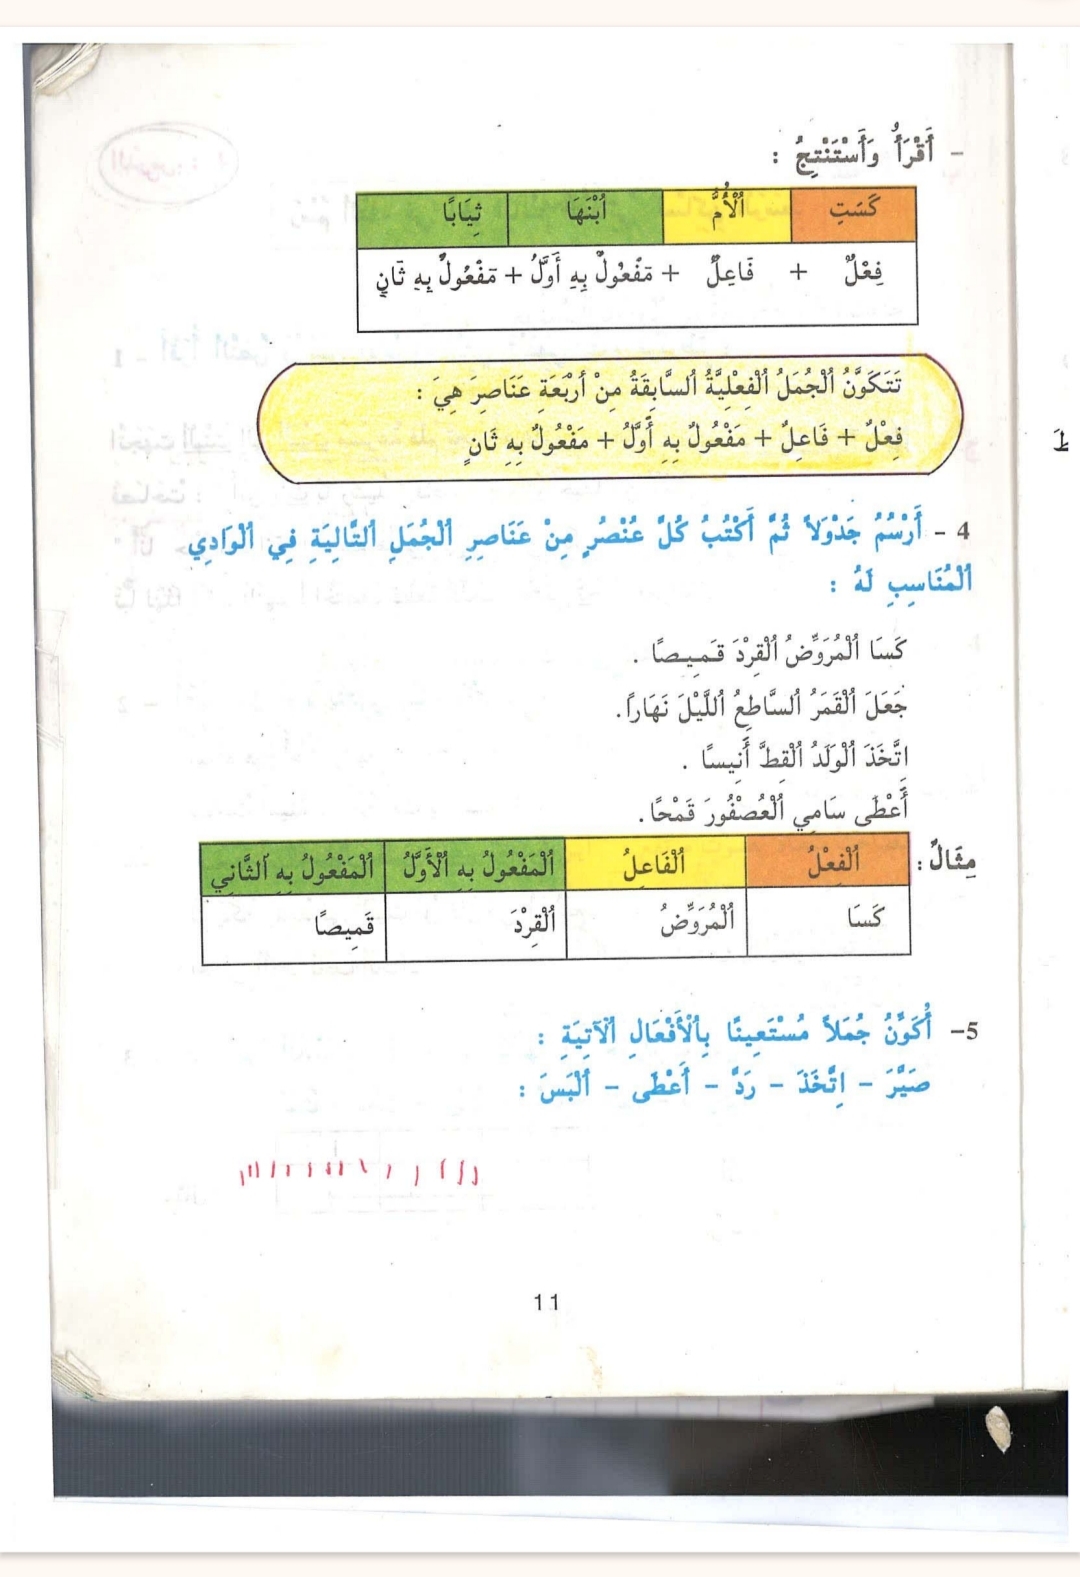 - أَقْرَأُ وَأَسْتَنْتِجُ :
كَسَتِ اُلْأُمُّ اُبْنَهَا ثِيَابًا
فِعْلٌ + فَاعِلٌ + مَفْعُولٌ بِهِ أَوَّلُ + مَفْعُولٌ بِهِ ثَانٍ
تَتَكَوَّنُ اُلْجُمَلُ اُلْفِعْلِيَّةُ اُلسَّابِقَةُ مِنْ أَرْبَعَةِ عَنَاصِرَ هِيَ :
فِعْلٌ + فَاعِلٌ + مَفْعُولٌ بِهِ أَوَّلُ + مَفْعُولٌ بِهِ ثَانٍ
4 - أَرْسُمُ جَدْوَلاً ثُمَّ أَكْتُبُ كُلَّ عُنْصُرٍ مِنْ عَنَاصِرِ اُلْجُمَلِ اُلتَّالِيَةِ فِي اُلْوَادِي
اُلْمُنَاسِبِ لَهُ :
كَسَا اُلْمُرَوِّضُ اُلْقِرْدَ قَمِيصًا .
جَعَلَ اُلْقَمَرُ اُلسَّاطِعُ اُللَّيْلَ نَهَارًا .
اتَّخَذَ اُلْوَلَدُ اُلْقِطَّ أَنِيسًا .
أَعْطَى سَامِي اُلْعُصْفُورَ قَمْحًا .
مِثَالٌ :
اُلْفِعْلُ اُلْفَاعِلُ اُلْمَفْعُولُ بِهِ اُلْأَوَّلُ اُلْمَفْعُولُ بِهِ اُلثَّانِي
كَسَا اُلْمُرَوِّضُ اُلْقِرْدَ قَمِيصًا
5- أُكَوِّنُ جُمَلاً مُسْتَعِينًا بِالْأَفْعَالِ اُلْآتِيَةِ :
صَيَّرَ - اِتَّخَذَ - رَدَّ - أَعْطَى - أَلْبَسَ :
11